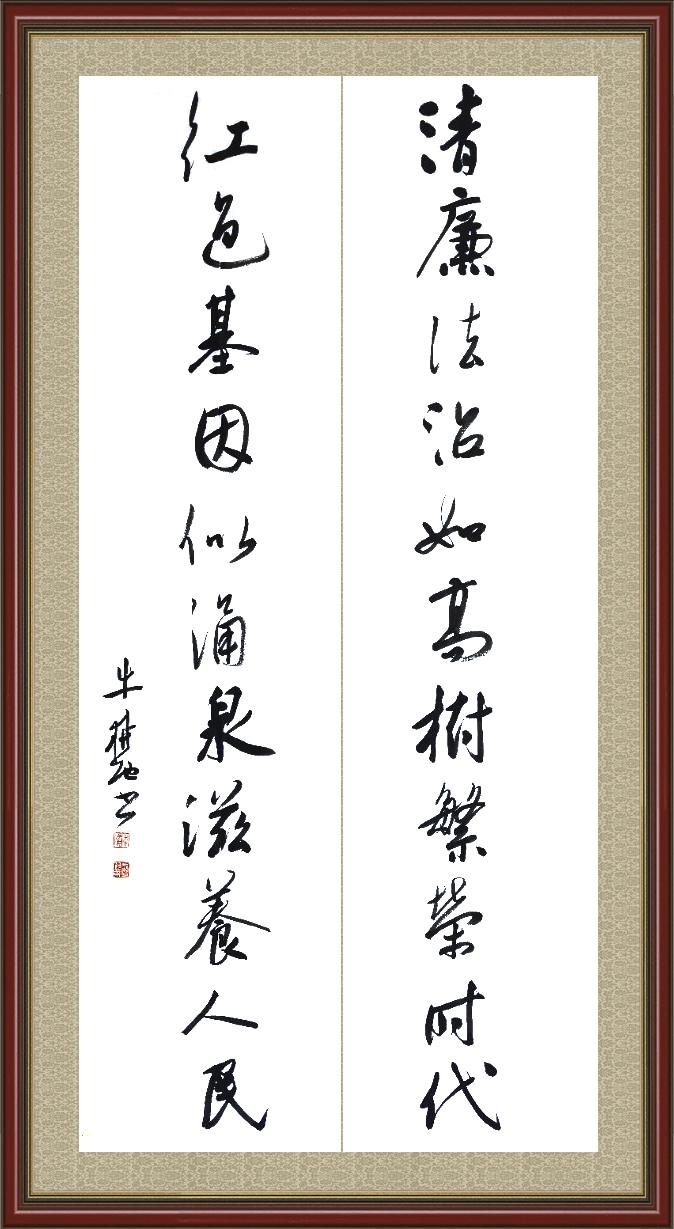 清廉法治如高树繁荣时代
红色基因似涌泉滋养人民
牛耕书